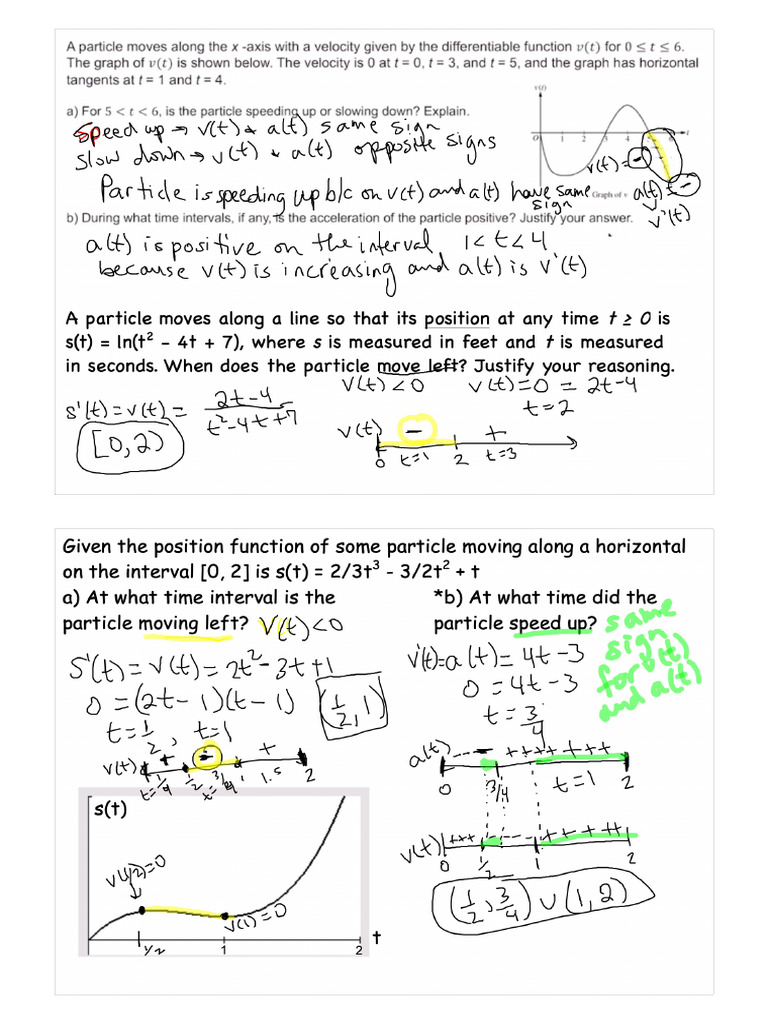 A particle moves along the x -axis with a velocity given by the differentiable function v(t) for 0 ≤ t ≤ 6.
The graph of v(t) is shown below. The velocity is 0 at t = 0, t = 3, and t = 5, and the graph has horizontal
tangents at t = 1 and t = 4.
a) For 5 < t < 6, is the particle speeding up or slowing down? Explain.
Speed up → v(t) & a(t) same sign
slow down → v(t) & a(t) opposite signs
Particle is speeding up b/c on v(t) and a(t) have same sign
v(t)
O 1 2 3 4 5 t
v(t) = −
Graph of v
a(t) = −
v'(t)
b) During what time intervals, if any, is the acceleration of the particle positive? Justify your answer.
a(t) is positive on the interval 1<t<4
because v(t) is increasing and a(t) is v'(t)
A particle moves along a line so that its position at any time t ≥ 0 is
s(t) = ln(t² – 4t + 7), where s is measured in feet and t is measured
in seconds. When does the particle move left? Justify your reasoning.
v(t) < 0 v(t) = 0 = 2t-4
t = 2
s'(t) = v(t) = 2t-4 / t²-4t+7
[0,2)
v(t) − +
0 t=1 2 t=3
Given the position function of some particle moving along a horizontal
on the interval [0, 2] is s(t) = 2/3t³ - 3/2t² + t
a) At what time interval is the
particle moving left? v(t)<0
S'(t) = v(t) = 2t²-3t+1
0 = (2t-1)(t-1)
(1/2, 1)
t = 1/2, t=1
v(t) + − +
t=1/4 1/2 t=3/4 1 1.5 2
s(t)
v(1/2)=0
v(1)=0
1/2 1 2 t
*b) At what time did the
particle speed up?
same sign for v(t) and a(t)
v'(t)=a(t) = 4t-3
0 = 4t-3
t = 3/4
a(t) ---- − +++++++
0 3/4 t=1 2
v(t) +++ ---- +++++
0 1/2 1 2
(1/2, 3/4) ∪ (1, 2)